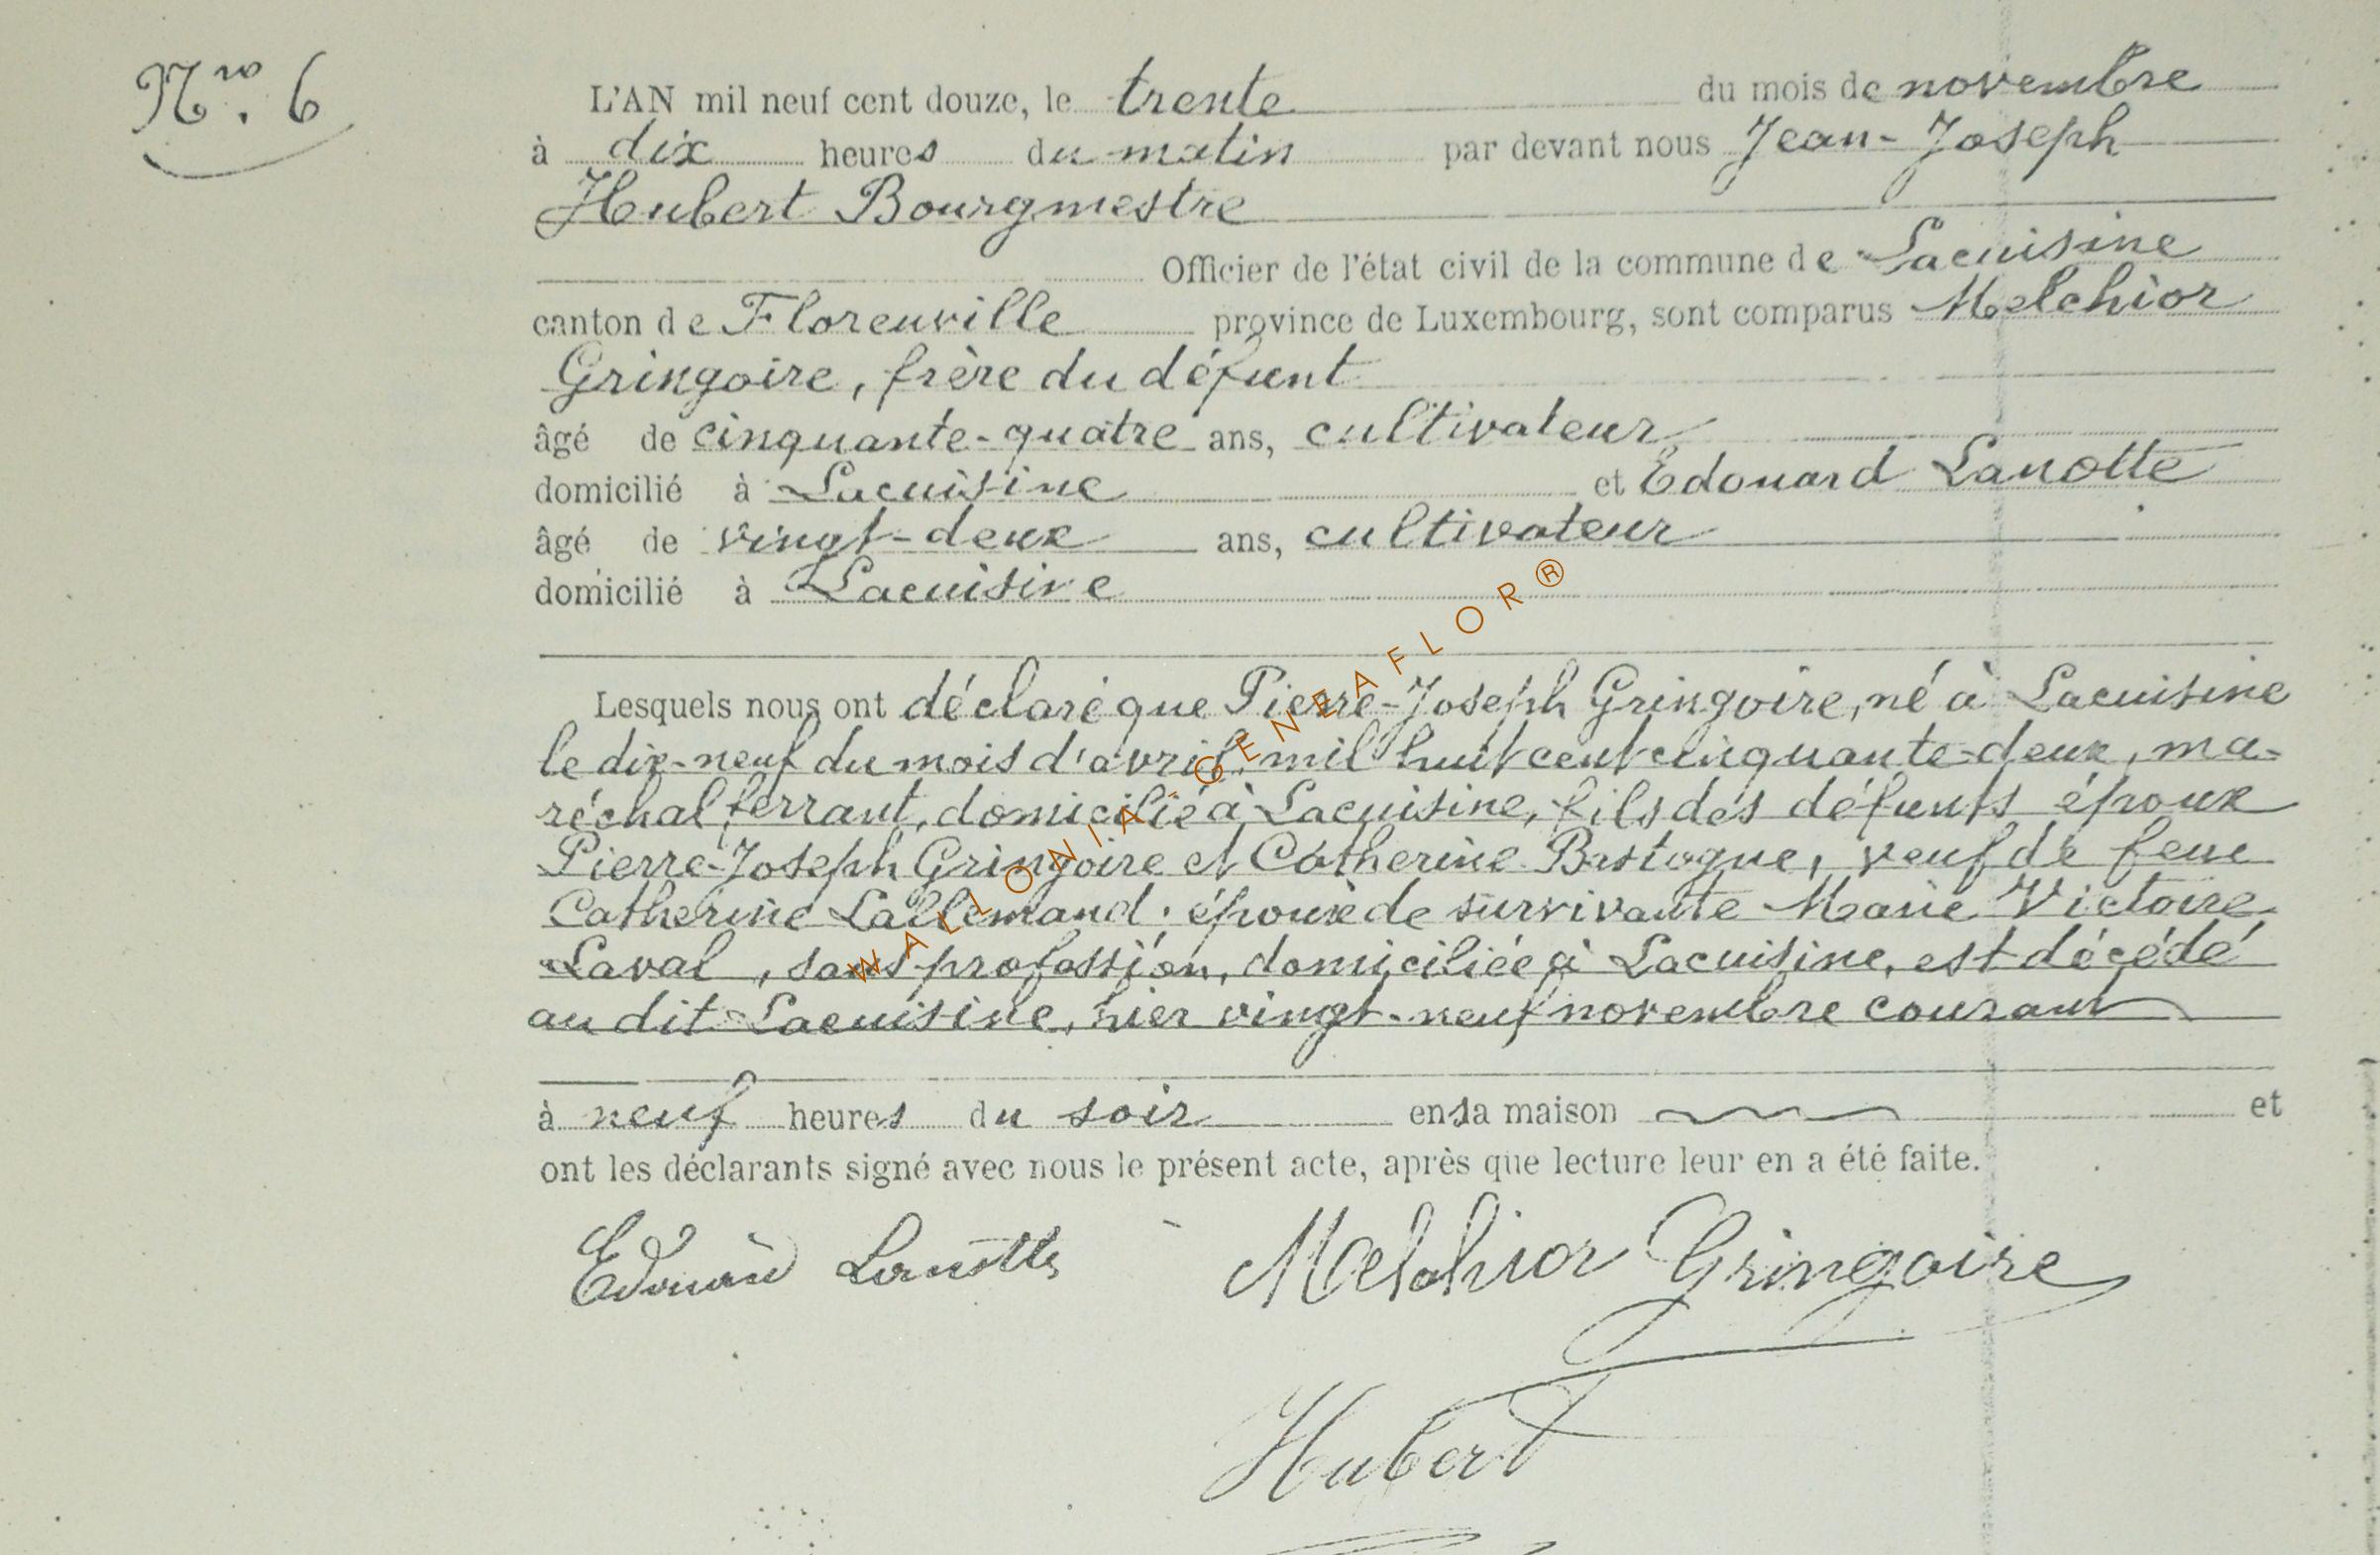 Nro. 6
L'AN mil neuf cent douze, le trente du mois de novembre
à dix heures du matin par devant nous Jean-Joseph
Hubert Bourgmestre
Officier de l'état civil de la commune de Lacuisine
canton de Florenville province de Luxembourg, sont comparus Melchior
Gringoire, frère du défunt
âgé de cinquante-quatre ans, cultivateur
domicilié à Lacuisine et Edouard Lanotte
âgé de vingt-deux ans, cultivateur
domicilié à Lacuisine
Lesquels nous ont déclaré que Pierre-Joseph Gringoire, né à Lacuisine
le dix-neuf du mois d'avril mil huit cent cinquante-deux, ma-
réchal ferrant, domicilié à Lacuisine, fils des défunts époux
Pierre-Joseph Gringoire et Catherine Bastogne, veuf de feue
Catherine Lallemand, époux de survivante Marie Victoire
Laval, sans profession, domiciliée à Lacuisine, est décédé
au dit Lacuisine, hier vingt-neuf novembre courant
à neuf heures du soir en sa maison et
ont les déclarants signé avec nous le présent acte, après que lecture leur en a été faite.
Edouard Lanotte Melchior Gringoire
Hubert
WALLONIA - GENEAFLOR®